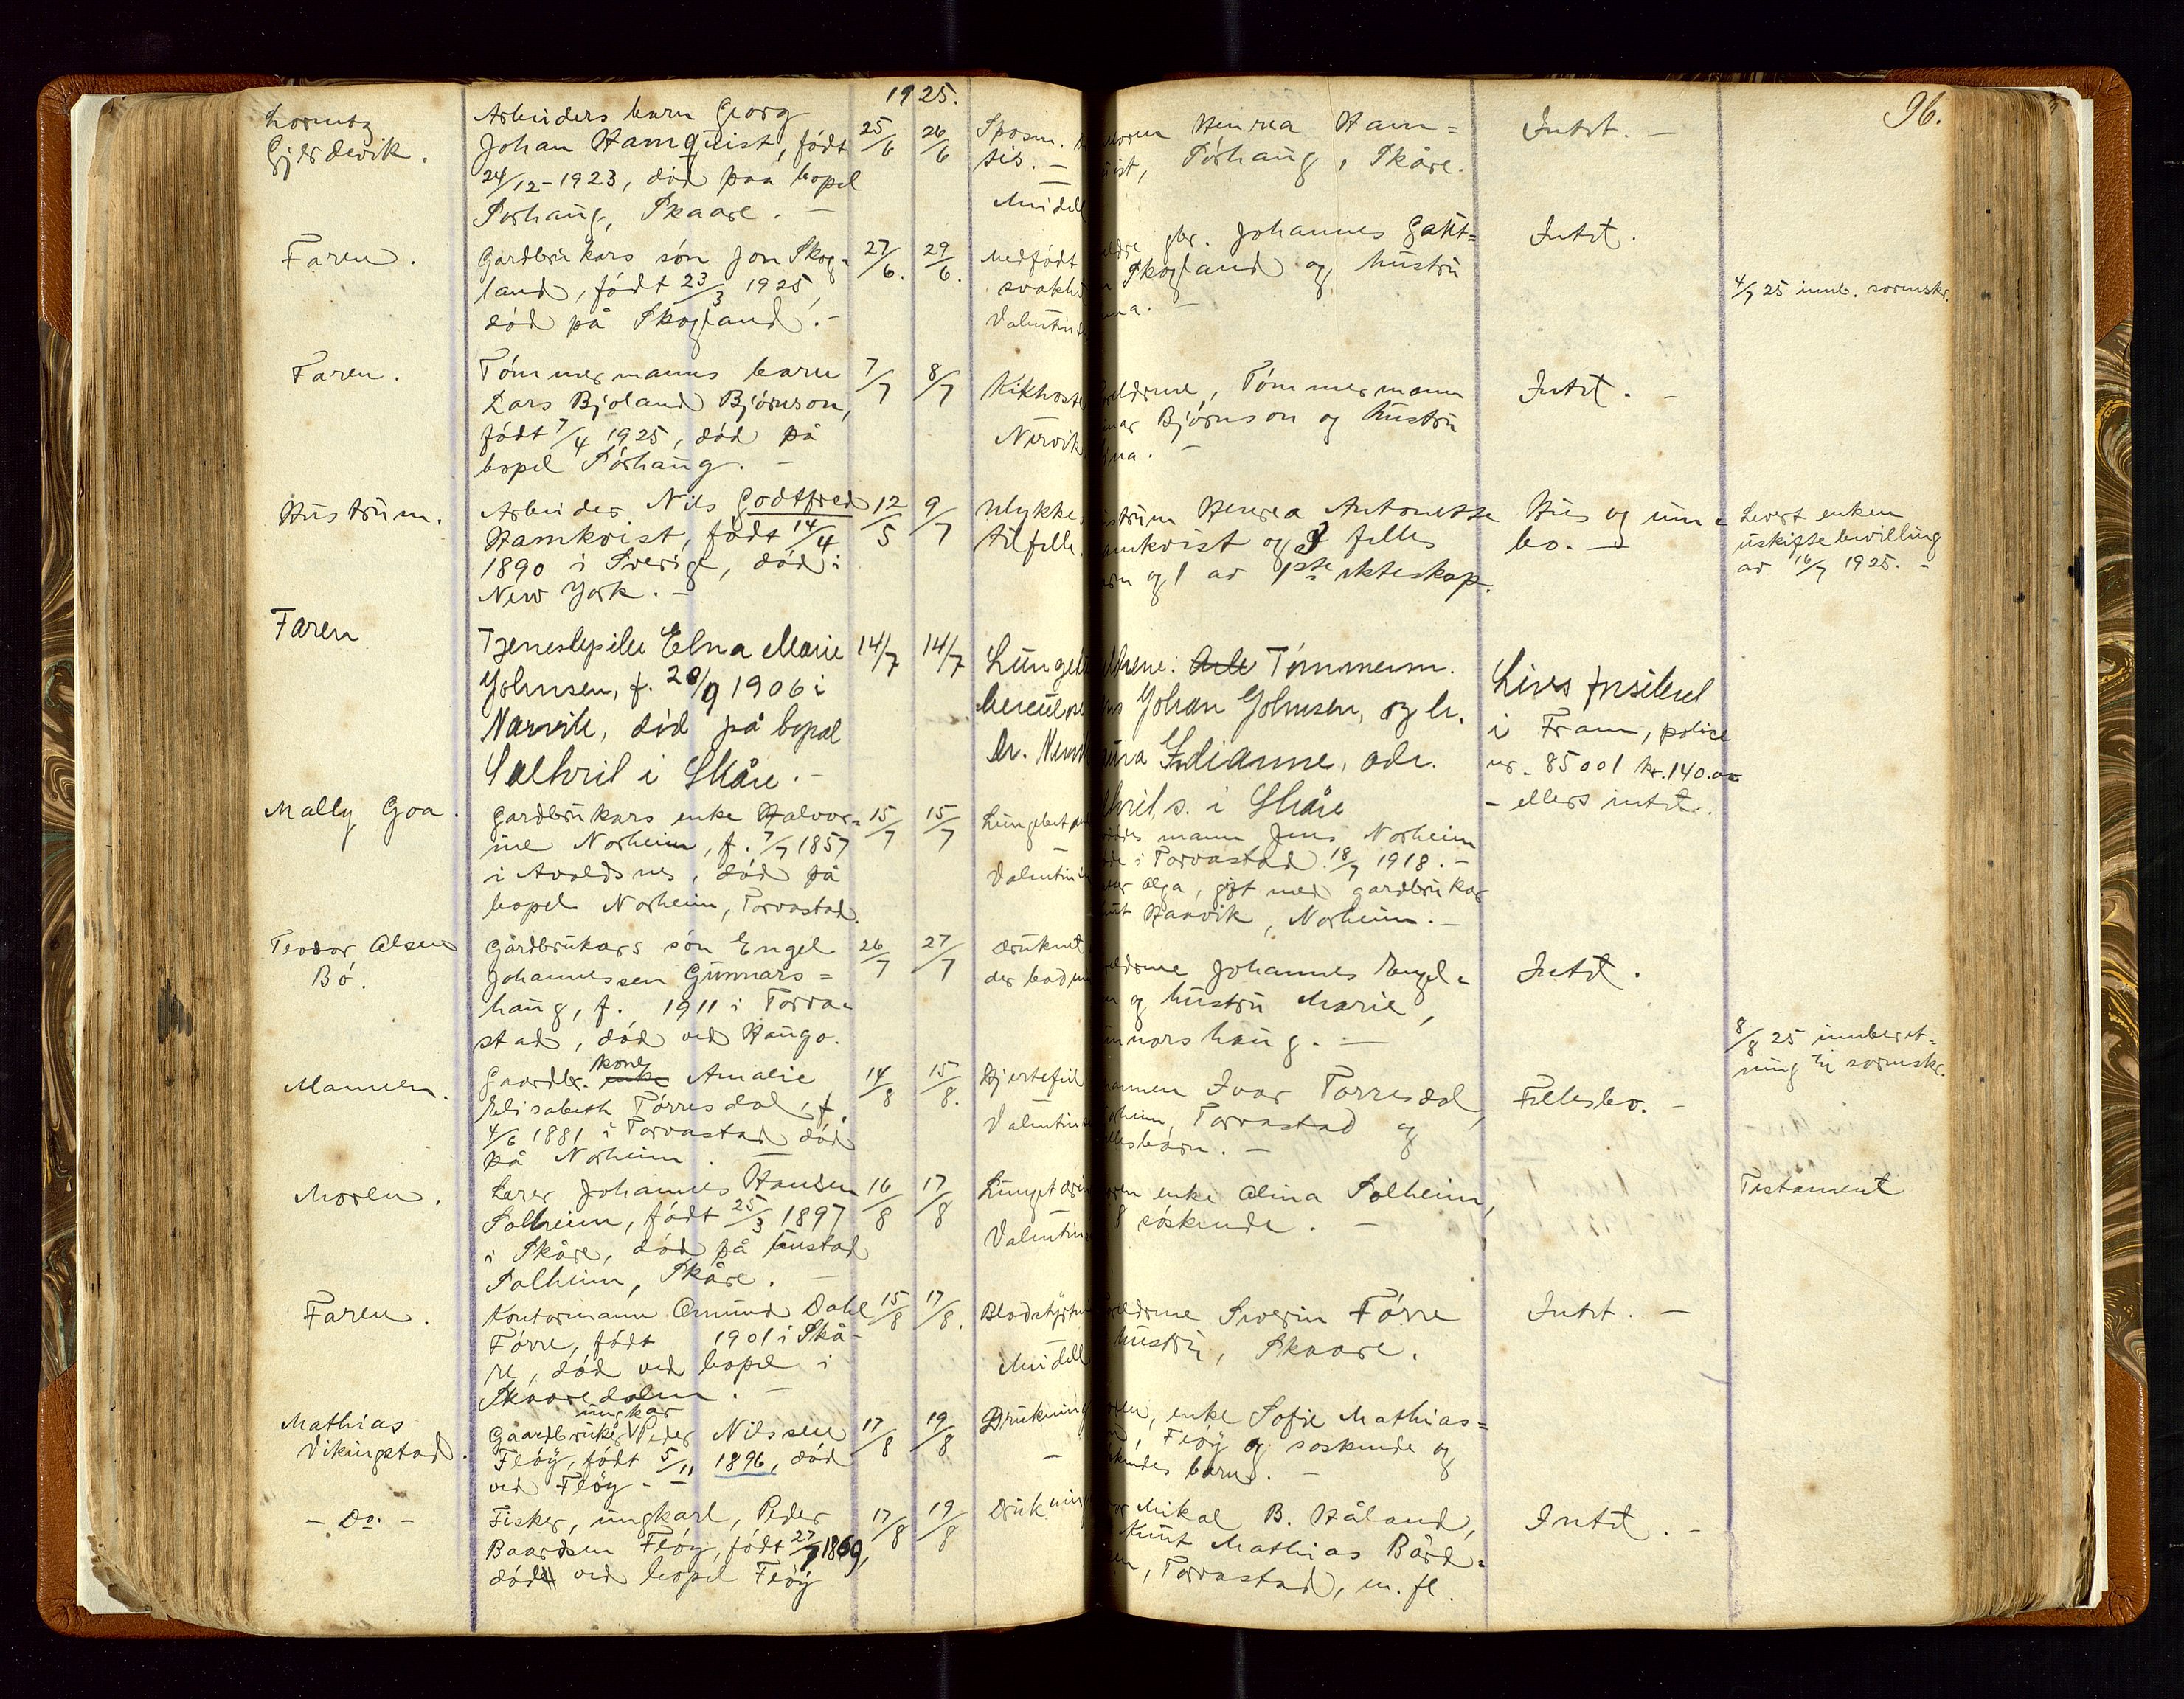 1925.
96.
Lorentz
Gjerdevik.
Arbeiders barn Georg
Johan Hamquist, født
24/12-1923, død paa bopel
Sørhaug, Skaare. -
25/6
26/6
sis. -
Henrea Ham=
Sørhaug, Skåre.
Intet. -
Faren.
Gardbrukars søn Jon Skog=
land, født 23/3 1925,
død på Skogland. -
27/6.
29/6.
Medfødt
svakhe
Valentin
gbr. Johannes
Skogland og hustru
Intet.
4/7 25 innb. sorenskr.
Faren.
Tømmermanns barn
Lars Bjoland Bjørnson,
født 7/4 1925, død på
bopel Sørhaug. -
7/7
8/7
Kikhoste
Nervik
eldrene, Tømmermann
Bjørnson og hustru
Intet. -
Hustruen.
Arbeider Nils Godtfred
Hamkvist, født 14/4
1890 i Sverige, død i
New York. -
12/5
9/7
Ulykkes
tilfelle.
Henrea Antonette
amkvist og 3 felles
og 1 av 1ste ekteskap.
Hus og inn=
bo. -
Levert enken
uskiftebevilling
av 16/7 1925. -
Faren
Tjenestepike Elna Marie
Johnsen, f. 20/9 1906 i
Narvik, død på bopel
Salhus i Skåre. -
14/7
14/7
Lunget
berculose
Dr. Nerv
Tømmerm.
Johan Johnsen, og h.
Indianne, adr.
i Skåre
Livsforsikret
i Fram, police
nr. 85001 kr. 140.00
- ellers intet.
Mally Goa.
Gardbrukars enke Halvor=
ine Norheim, f. 7/7 1857
i Avaldsnes, død på
bopel Norheim, Torvastad.
15/7
15/7
Valentin
mann Jens Norheim
i Torvastad 18/7 1918. -
Olga, gift med gardbrukar
Haavik, Norheim. -
Teodor Olsen
Bø.
Gårdbrukars søn Engel
Johannessen Gunnars=
haug, f. 1911 i Torva=
stad, død ved Haugo.
26/7
27/7
Druknet
eldrene Johannes Engel=
og hustru Marie,
unnarshaug. -
Intet.
8/8 25 innberet=
ning til sorenskr.
Mannen.
Gaardbr. kone Amalie
Elisabeth Torresdal, f.
4/6 1881 i Torvastad død
på Norheim. -
14/8
15/8.
Hjertefeil
Valentin
annen Ivar Torresdal,
Torvastad og
ellesbarn. -
Fellesbo. -
Moren.
Lærer Johannes Hansen
Solheim, født 25/3 1897
i Skåre, død på bustad
Solheim, Skåre. -
16/8
17/8
Valentin
enke Alina Solheim,
8 søskende. -
Testament
Faren.
Kontormann Omund Dahl
Førre, født 1901 i Skå-
re, død ved bopel i
Skaaredalen. -
15/8
17/8.
eldrene Severin Førre
hustru, Skaare.
Intet. -
Mathias
Vikingstad.
ungkar
Gaardbruker Peder Nilssen
Feøy, født 5/11 1896, død
ved Feøy. -
17/8
19/8
Drukning
-
enke Sofie Mathias=
Feøy og søskende og
barn. -
- Do. -
Fisker, ungkarl, Peder
Baardsen Feøy, født 27/7 1869,
død ved bopel Feøy
17/8
19/8
Drukning
Mikal B. Håland,
Knut Mathias Bård=
Torvastad, m. fl.
Intet. -